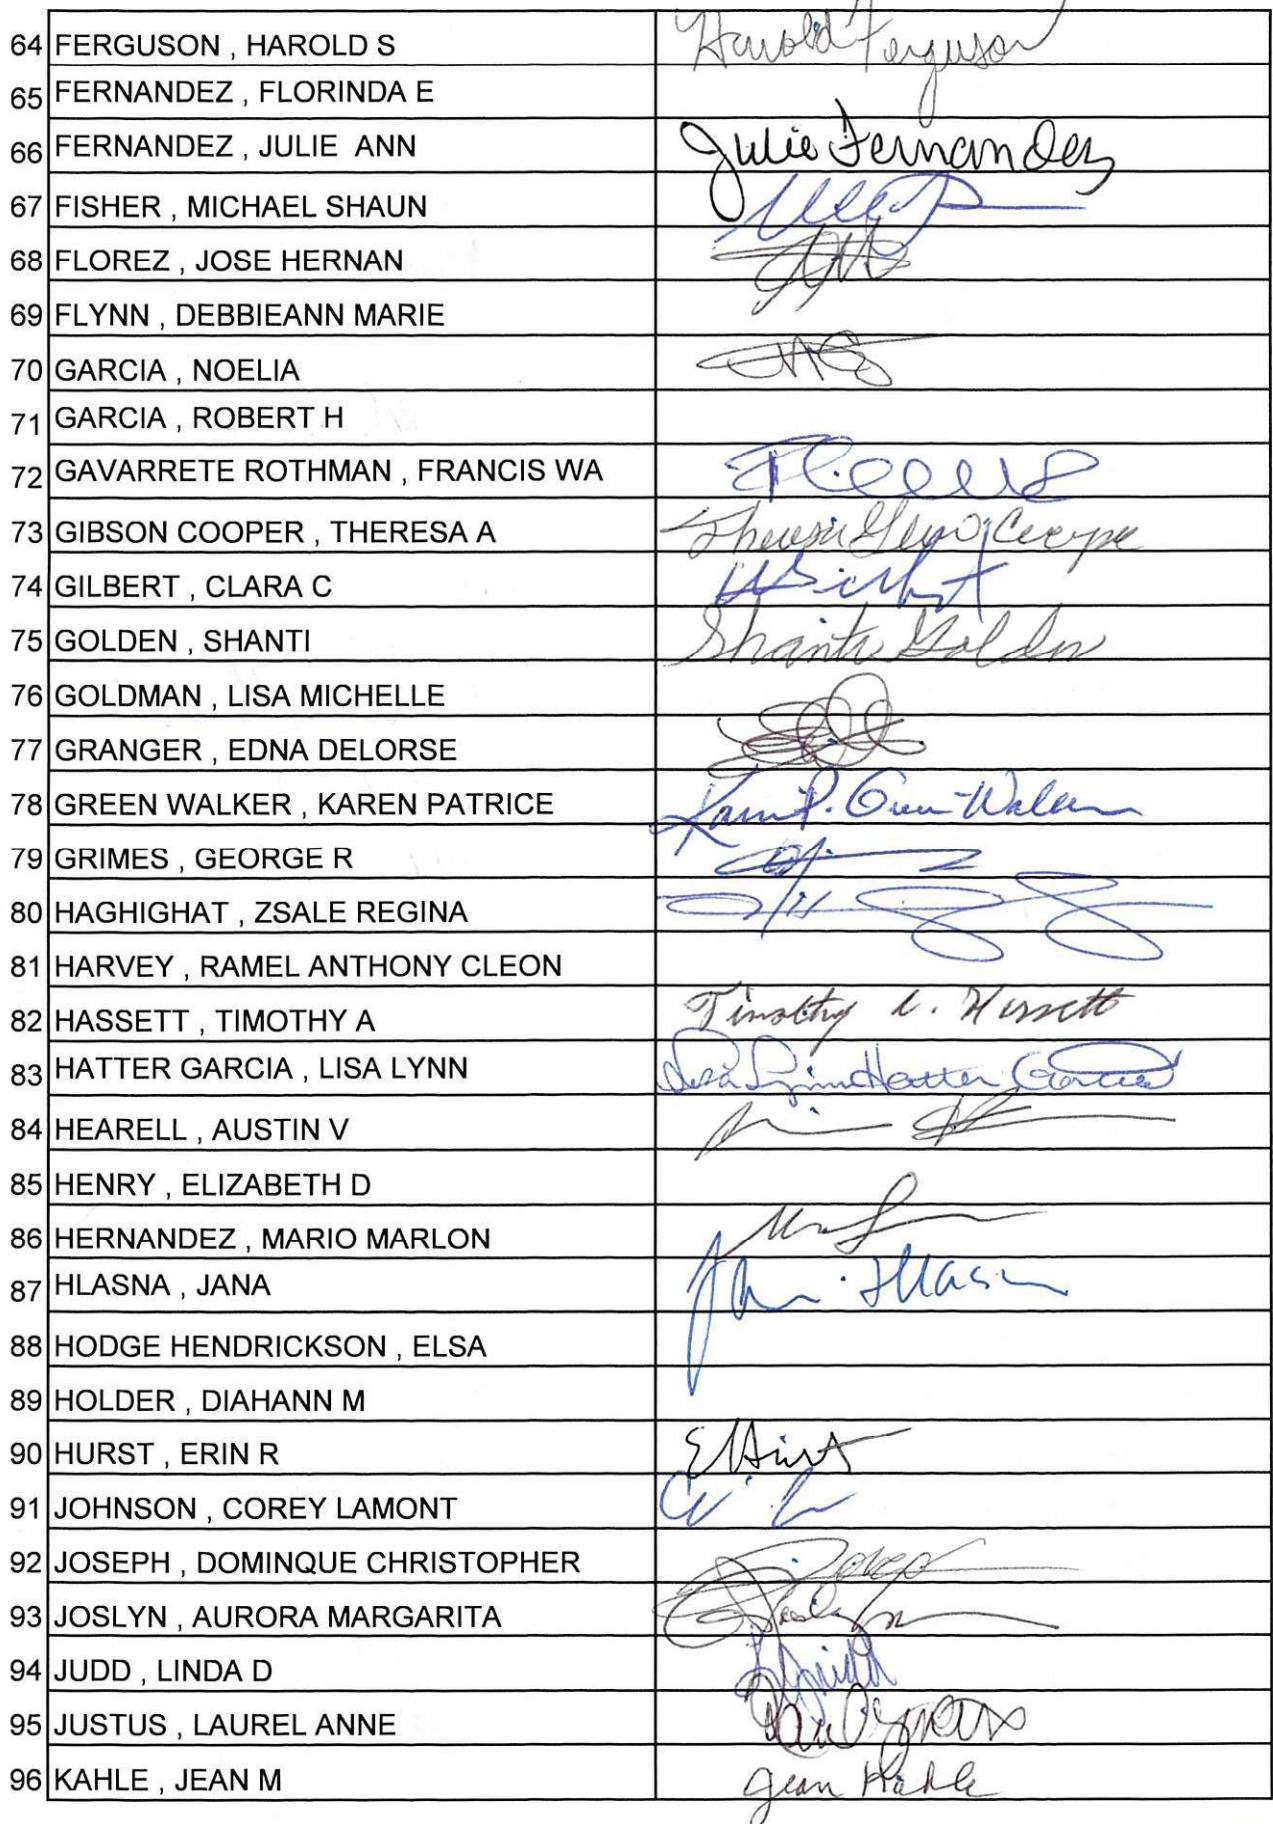 64 FERGUSON , HAROLD S Harold Ferguson
65 FERNANDEZ , FLORINDA E
66 FERNANDEZ , JULIE ANN Julie Fernandez
67 FISHER , MICHAEL SHAUN
68 FLOREZ , JOSE HERNAN
69 FLYNN , DEBBIEANN MARIE
70 GARCIA , NOELIA
71 GARCIA , ROBERT H
72 GAVARRETE ROTHMAN , FRANCIS WA
73 GIBSON COOPER , THERESA A
74 GILBERT , CLARA C
75 GOLDEN , SHANTI Shanti Golden
76 GOLDMAN , LISA MICHELLE
77 GRANGER , EDNA DELORSE
78 GREEN WALKER , KAREN PATRICE Karen P. Green-Walker
79 GRIMES , GEORGE R
80 HAGHIGHAT , ZSALE REGINA
81 HARVEY , RAMEL ANTHONY CLEON
82 HASSETT , TIMOTHY A Timothy A. Hassett
83 HATTER GARCIA , LISA LYNN Lisa Lynn Hatter Garcia
84 HEARELL , AUSTIN V
85 HENRY , ELIZABETH D
86 HERNANDEZ , MARIO MARLON
87 HLASNA , JANA
88 HODGE HENDRICKSON , ELSA
89 HOLDER , DIAHANN M
90 HURST , ERIN R E Hurst
91 JOHNSON , COREY LAMONT
92 JOSEPH , DOMINQUE CHRISTOPHER
93 JOSLYN , AURORA MARGARITA
94 JUDD , LINDA D
95 JUSTUS , LAUREL ANNE
96 KAHLE , JEAN M Jean Kahle